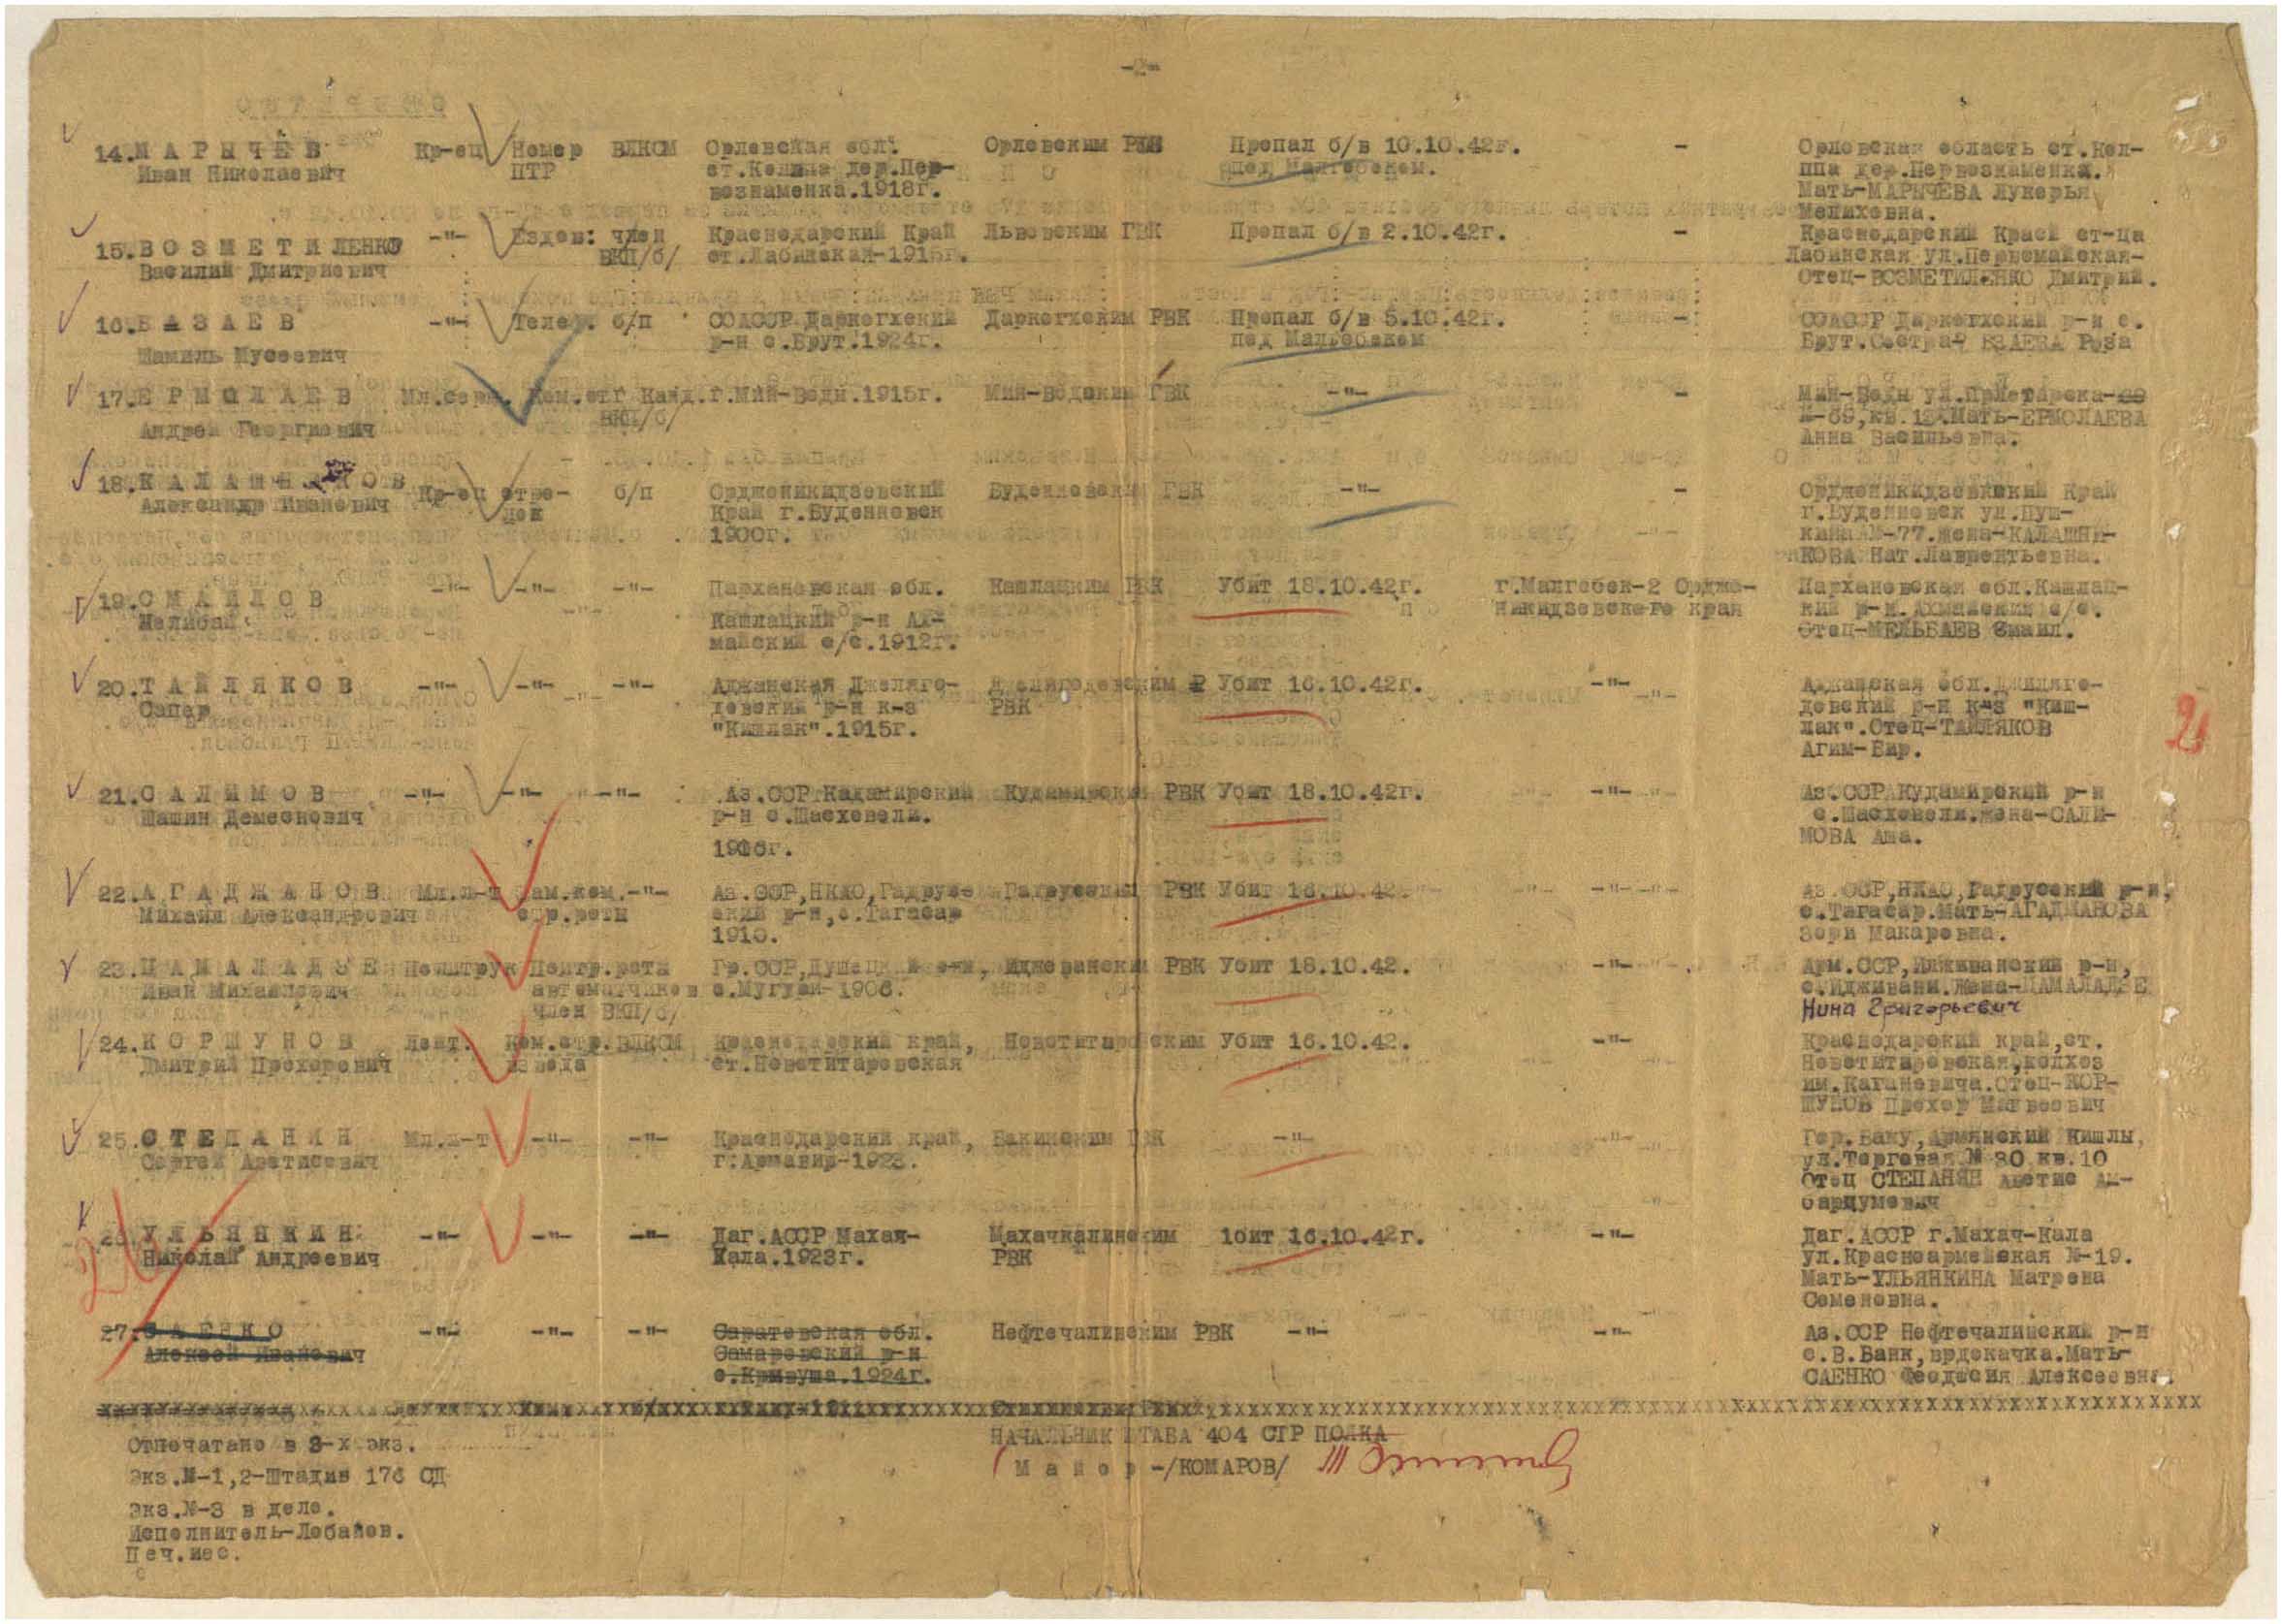 -2-
14.МАРЫЧЕВ Кр-ец Номер ВЛКСМ Орловская обл. Орловским РВК Пропал б/в 10.10.42г. - Орловская область ст.Кол-
Иван Николаевич ПТР дер.Пер- под Малгобеком. ппа дер.Первознаменка.
вознаменка.1918г. Мать-МАРЫЧЕВА Лукерья
Мелиховна.
15.ВОЗМЕТИЛЕНКО -"- Ездов: член Краснодарский Край Львовским ГВК Пропал б/в 2.10.42г. - Краснодарский Край ст-ца
Василий Дмитриевич ВКП/б/ ст.Лабинская-1915г. Лабинская ул.Первомайская-
Отец-ВОЗМЕТИЛЕНКО Дмитрий.
16. -"- Телеф. б/п СОАССР Даркогхский Даркогхским РВК Пропал б/в 5.10.42г. - СОАССР Даркогхский р-н с.
Шамиль Мусоевич р-н с.Брут.1924г. под Малгобеком Брут.Сестра- Роза
17.ЕРМОЛАЕВ Мл.серж. Ком.отг Канд. г.Мин-Воды.1915г. Мин-Водским ГВК -"- - Мин-Воды
Андрей Георгиевич ВКП/б/ №-69,кв. Мать-ЕРМОЛАЕВА
Анна Васильевна.
18.КАЛАШНИКОВ Кр-ец стре- б/п Орджоникидзевский Буденновским ГВК -"- - Орджоникидзевский Край
Александр Иванович лок Край г.Буденновск г.Буденновск ул.Пуш-
1900г. кина №-77.Жена-КАЛАШНИ-
КОВА Нат.Лаврентьевна.
19.СМАИЛОВ -"- -"- -"- Пархановская обл. Кашлацким РВК Убит 18.10.42г. г.Малгобек-2 Орджо- Пархановская обл.Кашлац-
Малибай Кашлацкий р-н Ах- никидзевского края кий р-н.Ахмайский с/с.
майский с/с.1912г. Отец-МЕЛЬБАЕВ Смаил.
20.ТАЙЛЯКОВ -"- -"- -"- Аджанская Джеляго- РВК Убит 16.10.42г. -"- Аджанская обл.Джиляго-
Сапер довский р-н к-з довский р-н к-з "Киш-
"Кишлак".1915г. лак".Отец-ТАЙЛЯКОВ
Агим-Бир.
21.САЛИМОВ -"- -"- -"- Аз.ССР Кадамирский Кудамирским РВК Убит 18.10.42г. -"- Аз.ССР Кудамирский р-н
Шашин Демеснович р-н с.Шасховели. с.Шасховели.Жена-САЛИ-
МОВА Аша.
22.АГАДЖАНОВ Мл.л-т Зам.ком. -"- Аз.ССР,НКАО,Гадрусс- Гадрусским РВК Убит 16.10.42 -"- Аз.ССР,НКАО,Гадрусский р-н,
Михаил Александрович стр.роты ский р-н,с.Тагасар с.Тагасар.Мать-АГАДЖАНОВА
1910. Зори Макаровна.
23.ЦАМАЛАДЗЕ Политрук Политр.рота Гр.ССР,Душецкий р-н, РВК Убит 18.10.42. -"- Арм.ССР,Иджеванский р-н,
Иван Михайлович автоматчиков 1906. с.Идживани.Жена-ЦАМАЛАДЗЕ
член ВКП/б/ Нина Григорьевич
24.КОРШУНОВ Лейт. Ком.стр. ВЛКСМ Краснодарский край, Новотитаровским Убит 16.10.42. -"- Краснодарский край,ст.
Дмитрий Прохорович взвода ст.Новотитаровская Новотитаровская,колхоз
им.Кагановича.Отец-КОР-
ШУНОВ Прохор Матвеевич
25.СТЕПАНЯН Мл.л-т -"- -"- Краснодарский край, Бакинским ГВК -"- -"- Гор.Баку,Армянский Кишлы,
Сергей Аветисович г.Армавир-1923. ул.Торговая № 30 кв.10
Отец СТЕПАНЯН Аветис Ам-
барцумович
26.УЛЬЯНКИН -"- -"- -"- Даг.АССР Махач- Махачкалинским 1бит 16.10.42г. -"- Даг.АССР г.Махач-Кала
Николай Андреевич Кала.1923г. РВК ул.Красноармейская №-19.
Мать-УЛЬЯНКИНА Матрена
Семеновна.
27.САЕНКО -"- -"- -"- Саратовская обл. Нефтечалинским РВК -"- -"- Аз.ССР Нефтечалинский р-н
Алексей Иванович Самаровский р-н с.В.Банк,врдокачка.Мать-
с.Кривуша.1924г. САЕНКО Феодосия Алексеевна.
Отпечатано в 3-х экз. НАЧАЛЬНИК ШТАБА 404 СТР ПОЛКА
Экз.№-1,2-Штадив 176 СД Майор -/КОМАРОВ/
Экз.№-3 в деле.
Исполнитель-Лобанов.
Печ.
26
21